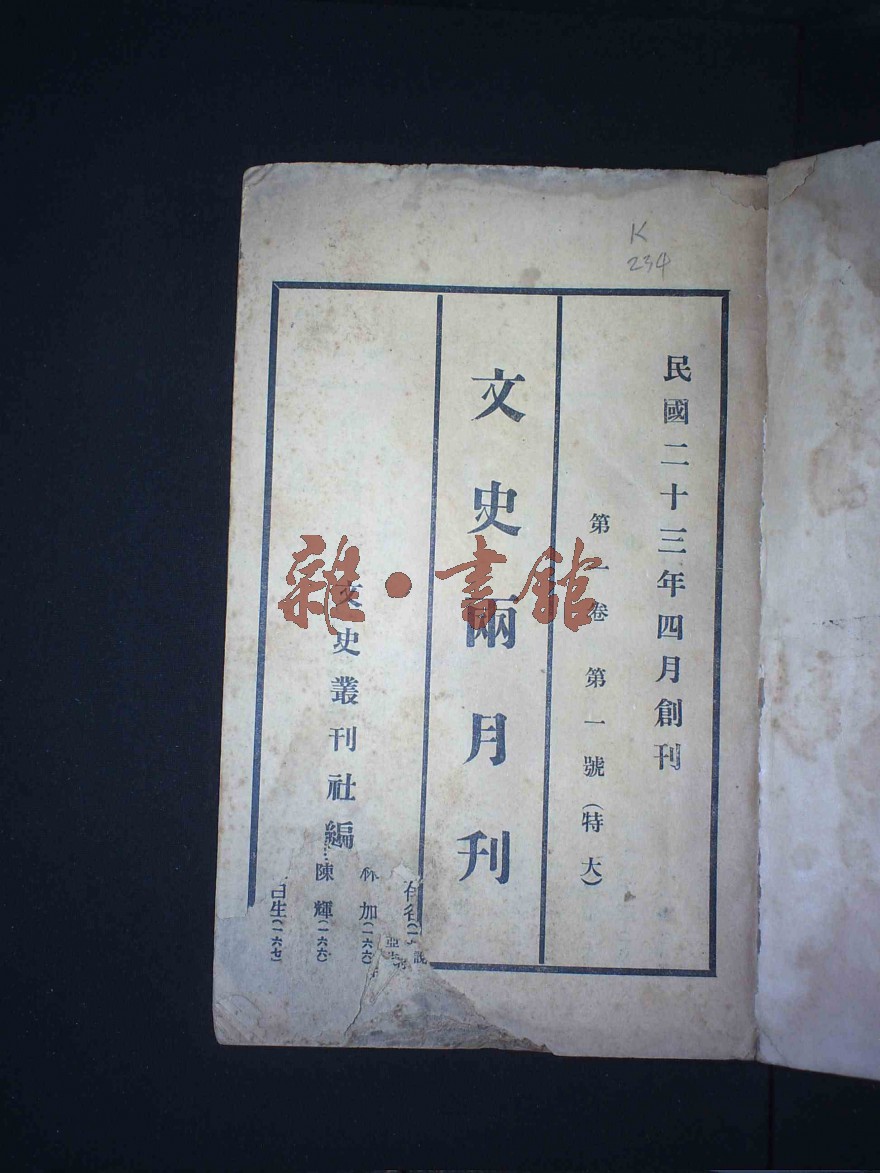 K
234
民國二十三年四月創刊
第一卷 第一號(特大)
文史兩月刊
文史叢刊社編
雜·書館
加(一六六)
陳輝(一六六)
生(一六七)